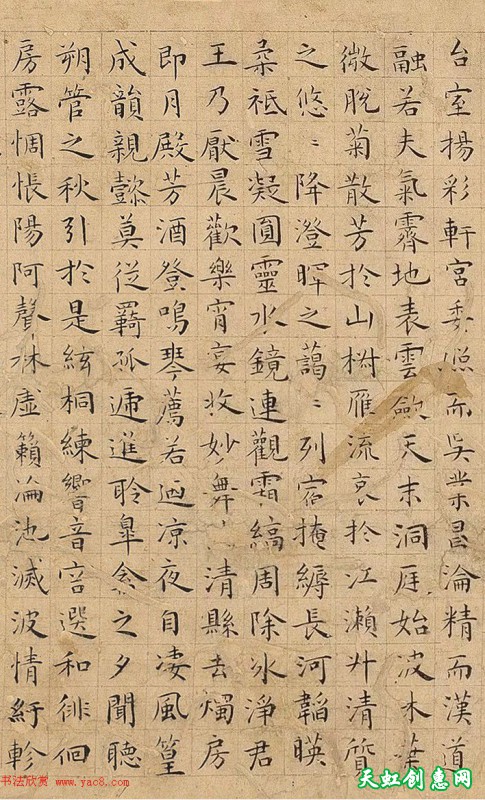 台室揚彩軒宮委照而吳業昌淪精而漢道
融若夫氣霽地表雲斂天末洞庭始波木葉
微脫菊散芳於山椒雁流哀於江瀨升清質
之悠〻降澄暉之藹〻列宿掩縟長河韜暎
柔祇雪凝圓靈水鏡連觀霜縞周除冰淨君
王乃厭晨歡樂宵宴收妙舞弛清縣去燭房
即月殿芳酒登鳴琴薦若迺涼夜自淒風篁
成韻親懿莫從羈孤遞進聆皐禽之夕聞聽
朔管之秋引於是絃桐練響音容選和徘徊
房露惆悵陽阿聲林虛籟淪池滅波情紆軫
书法欣赏 www.yac8.com
天虹创意网